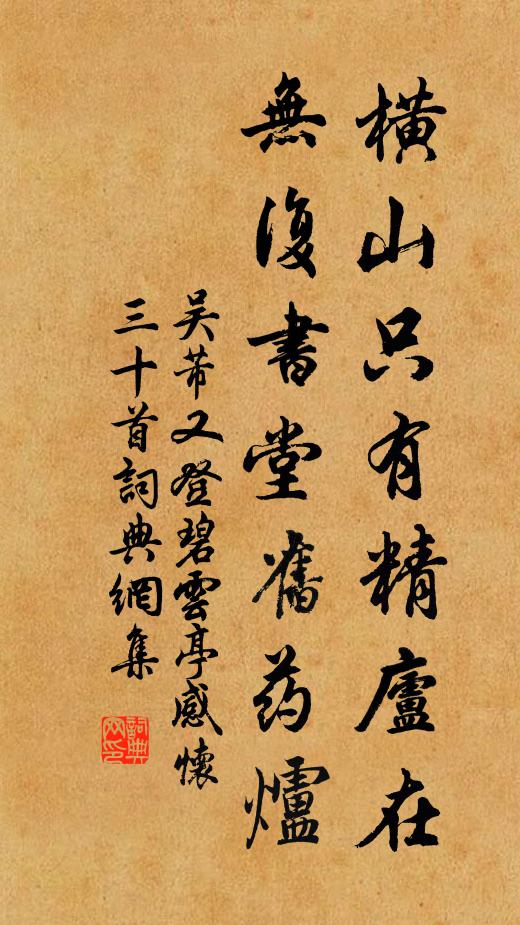 橫山只有精廬在
無復書堂舊药爐
吴芾又登碧雲亭感懷
三十首詞典網集
詞典网印